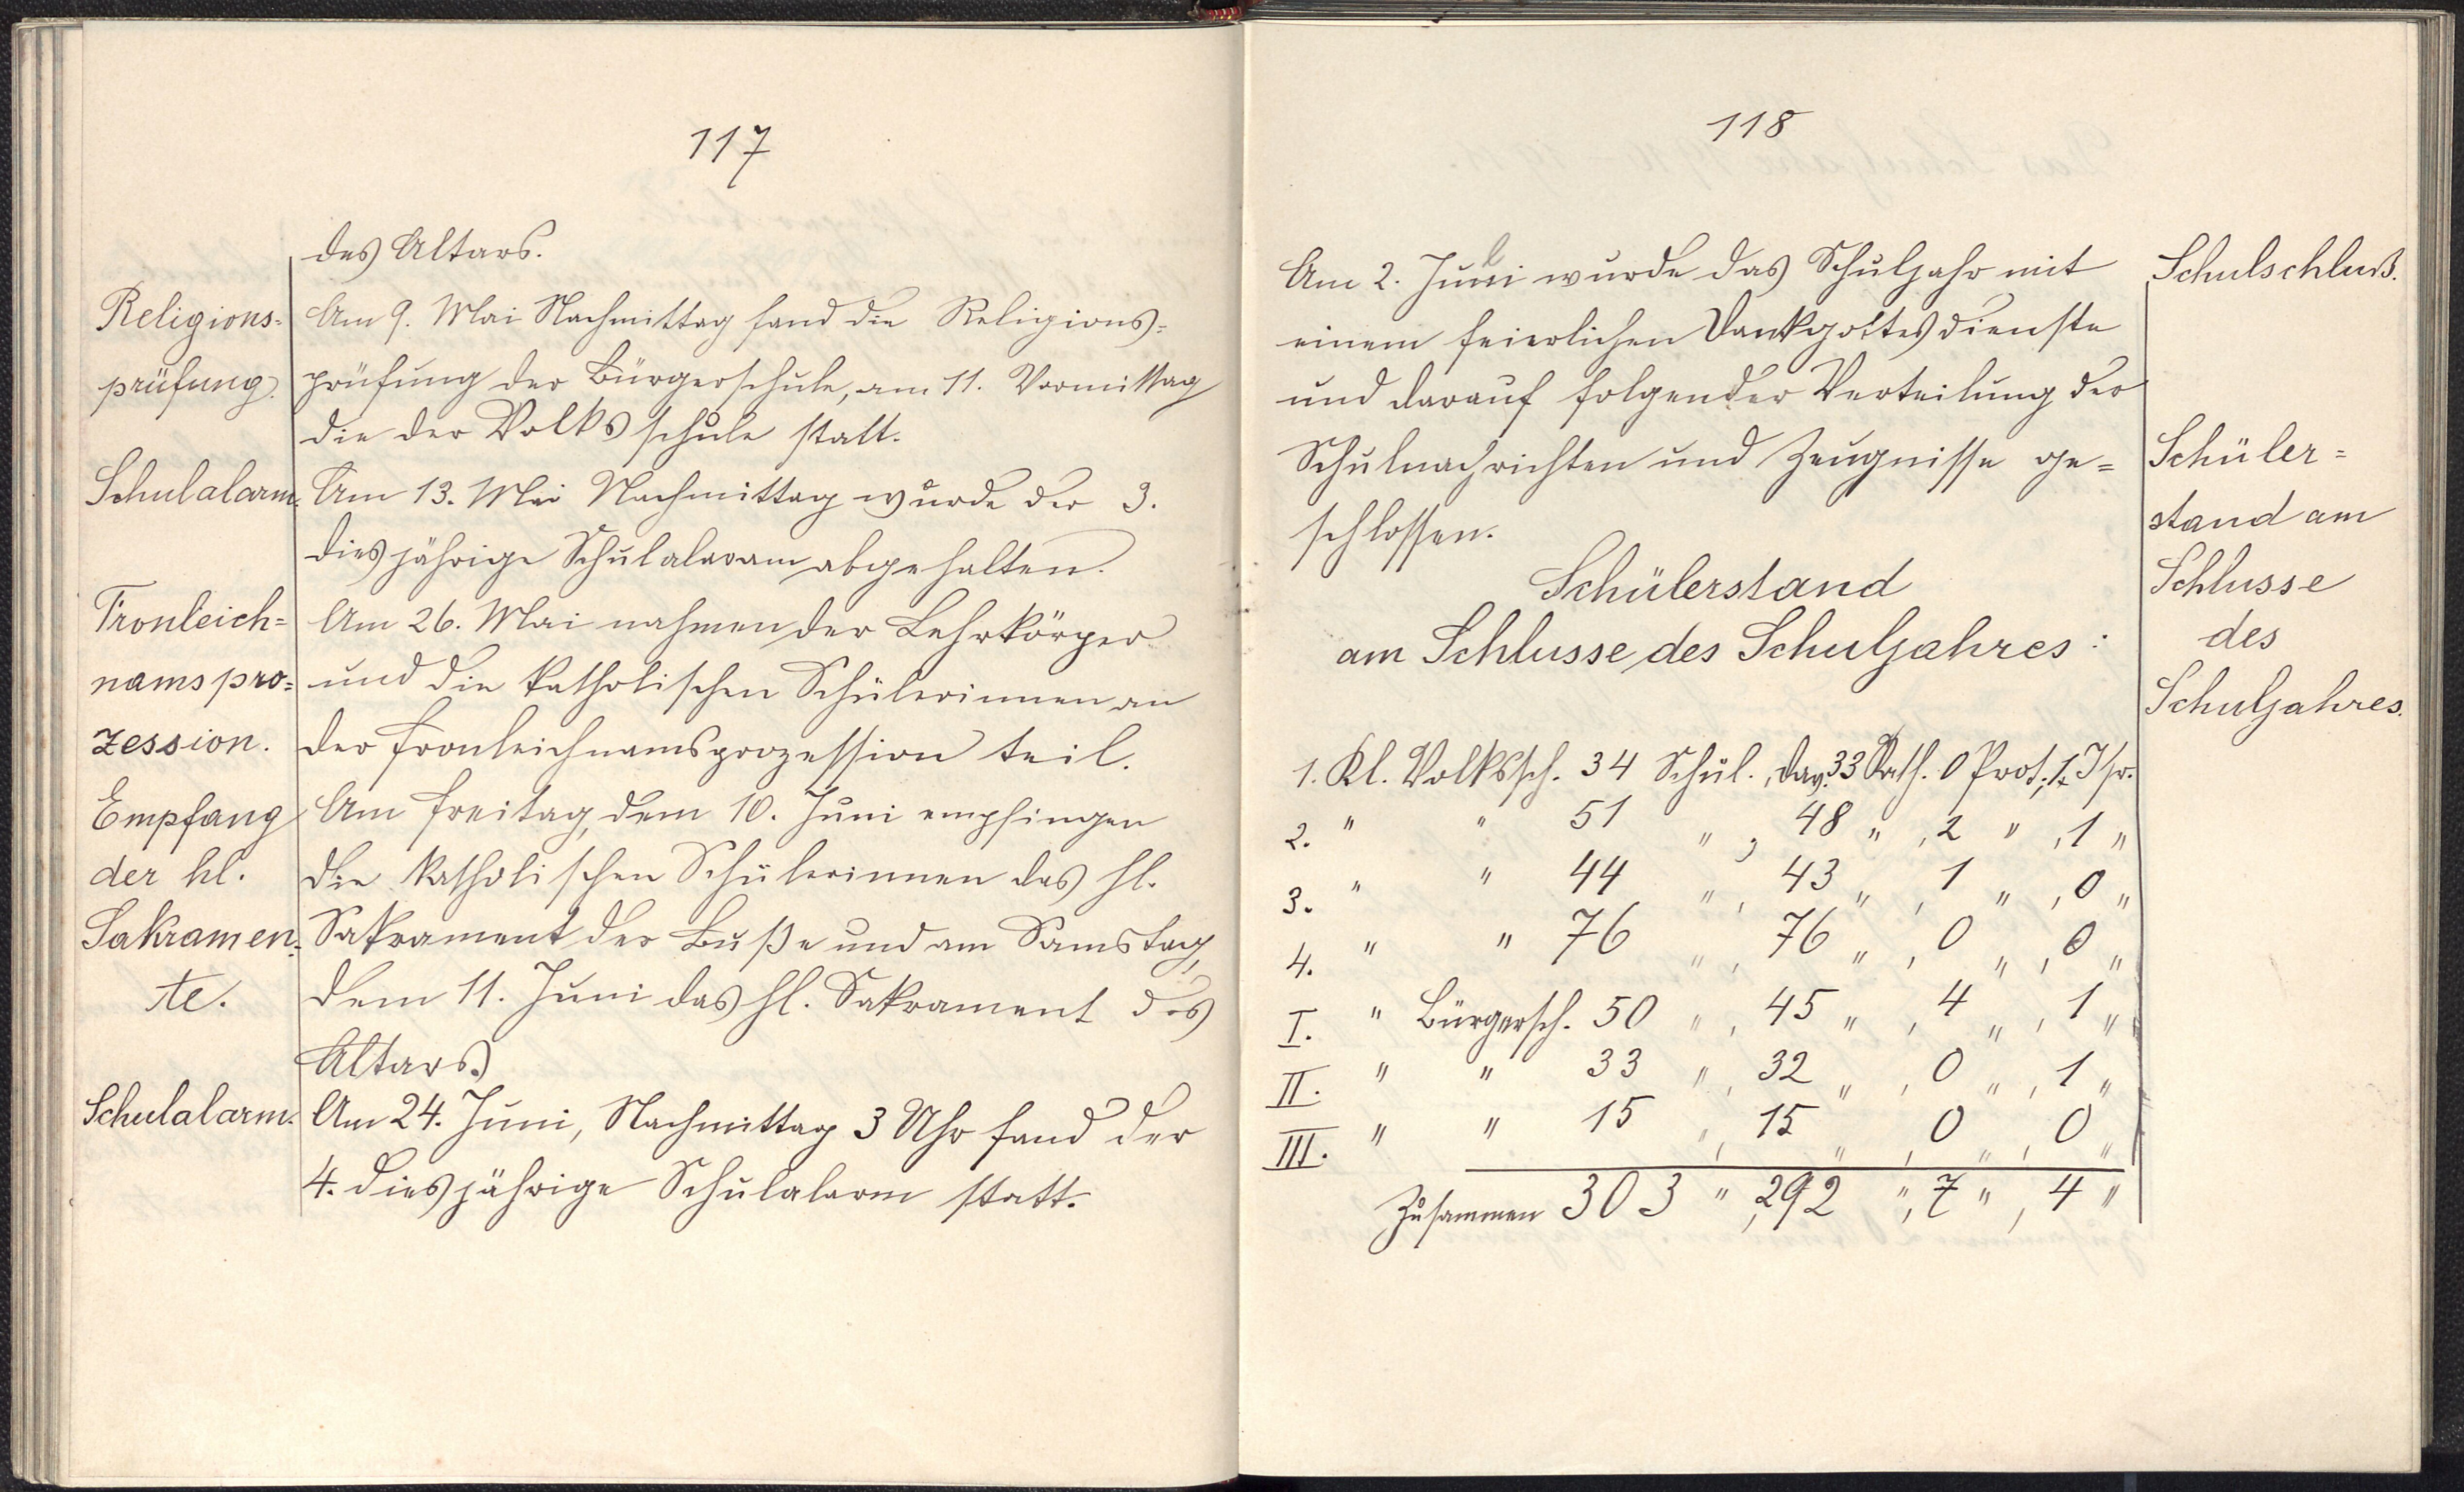 117
des Altars.
Religions-
prüfung.
Am 9. Mai Nachmittag fand die Religions-
prüfung der Bürgerschule, am 11. Vormittag
die der Volksschule statt.
Schulalarm.
Am 13. Mai Nachmittag wurde der 3.
diesjährige Schulalaram abgehalten.
Fronleich-
namspro-
zession.
Am 26. Mai nahmen der Lehrkörper
und die katholischen Schülerinnen an
der Fronleichnamsprozession teil.
Empfang
der hl.
Sakramen-
te.
Am Freitag, dem 10. Juni empfingen
die katholischen Schülerinnen das hl.
Sakrament der Buße und am Samstag,
dem 11. Juni das hl. Sakrament des
Altars.
Schulalarm.
Am 24. Juni, Nachmittag 3 Uhr fand der
4. diesjährige Schulalarm statt.
118
Schulschluß.
Am 2. Juli wurde das Schuljahr mit
einem feierlichen Dankgottesdienste
und darauf folgender Verteilung der
Schulnachrichten und Zeugnisse ge-
schlossen.
Schüler-
stand am
Schlusse
des
Schuljahres.
Schülerstand
am Schlusse des Schuljahres:
1. Kl. Volkssch. 34 Schül., dav. 33 Kath. 0 Prot., 1 Isr.
2. " " 51 " , 48 " , 2 " , 1 "
3. " " 44 " , 43 " , 1 " , 0 "
4. " " 76 " , 76 " , 0 " , 0 "
I. " Bürgersch. 50 " , 45 " , 4 " , 1 "
II. " " 33 " , 32 " , 0 " , 1 "
III. " " 15 " , 15 " , 0 " , 0 "
Zusammen 303 " , 292 " , 7 " , 4 "